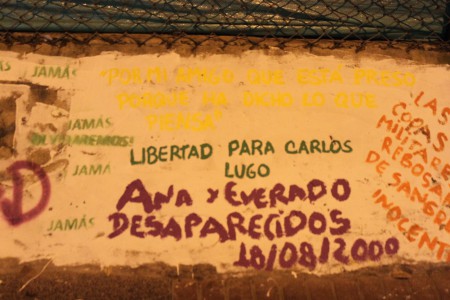 JAMÁS
"POR MI AMIGO QUE ESTA PRESO
PORQUE HA DICHO LO QUE
PIENSA"
JAMÁS
OLVIDAREMOS!
JAMA
JAMÁS
LIBERTAD PARA CARLOS
LUGO
ANA Y EVERADO
DESAPARECIDOS
18/08/2000
LAS
COPAS
MILITARE
REBOSA
DE SANGR
INOCENT